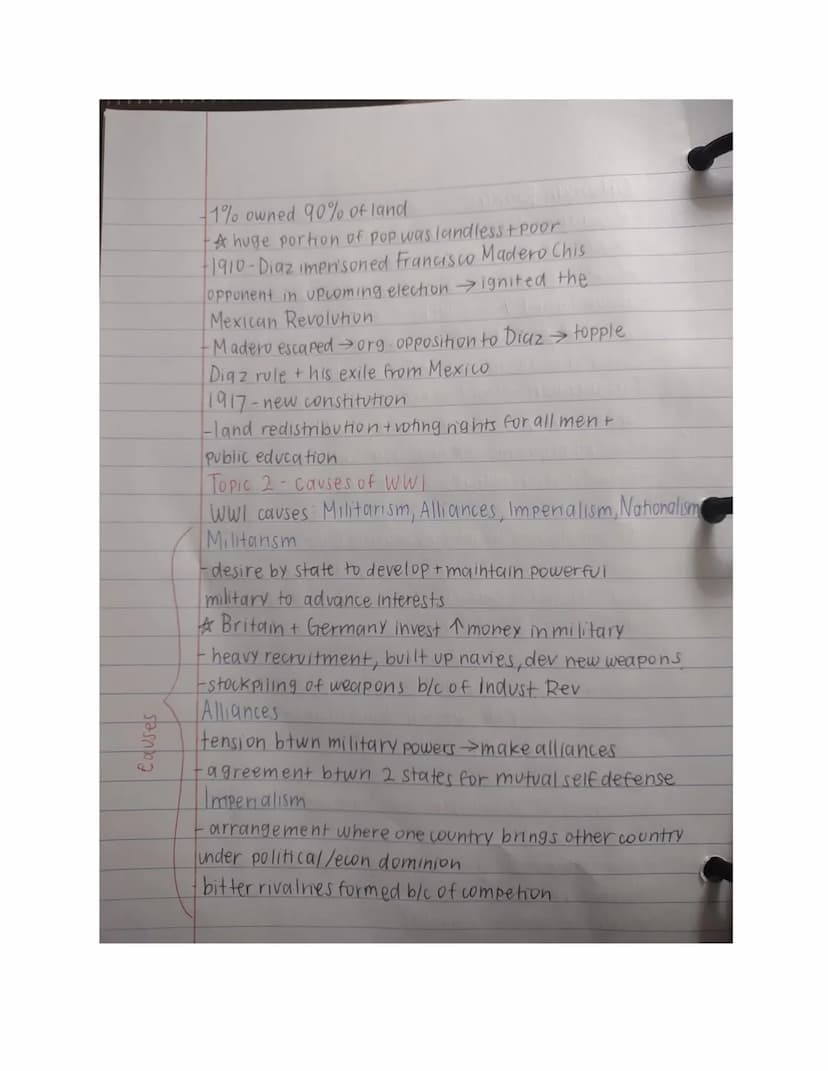 -1% owned 90% of land
-☆ huge portion of pop was landless + poor
-1910 - Diaz imprisoned Francisco Madero (his
opponent in upcoming election → ignited the
Mexican Revolution
-Madero escaped → org. opposition to Diaz → topple
Diaz rule + his exile from Mexico
1917 - new constitution
-land redistribution + voting rights for all men +
public education
Topic 2 - causes of WWI
WWI causes: Militarism, Alliances, Imperialism, Nationalism
Militarism
-desire by state to develop + maintain powerful
military to advance interests
☆ Britain + Germany invest ↑ money in military
- heavy recruitment, built up navies, dev new weapons
-stockpiling of weapons b/c of Indust Rev
Alliances
tension btwn military powers → make alliances
-agreement btwn 2 states for mutual self defense
Imperialism
- arrangement where one country brings other country
under political/econ dominion
-bitter rivalries formed b/c of competion
Causes